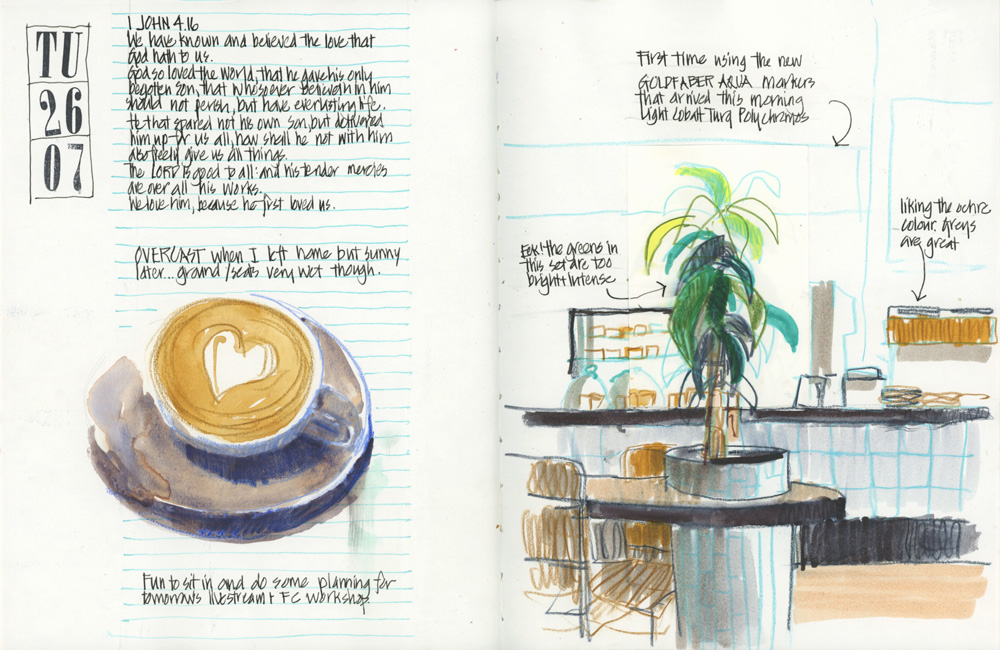 TU
26
07
1 JOHN 4.16
We have known and believed the love that
God hath to us.
God so loved the world, that he gave his only
begotten son, that whosoever believeth in him
should not perish, but have everlasting life.
He that spared not his own son, but delivered
him up for us all, how shall he not with him
also freely give us all things.
The LORD is good to all: and his tender mercies
are over all his works.
We love him, because he first loved us.
OVERCAST when I left home but sunny
later... ground/seats very wet though.
Fun to sit in and do some planning for
tomorrows livestream + FC workshop
First time using the new
GOLDFABER AQUA markers
that arrived this morning
Light Cobalt Turq Polychromos
Eek! the greens in
this set are too
bright + intense
liking the ochre
colour. Greys
are great